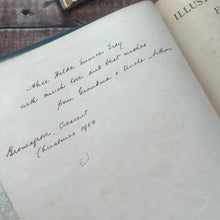 Alice Hilda Eunice Grey
with much love and best wishes
from Grandma & Uncle Arthur
Bromsgrove Crescent
Christmas 1900
ILLUS